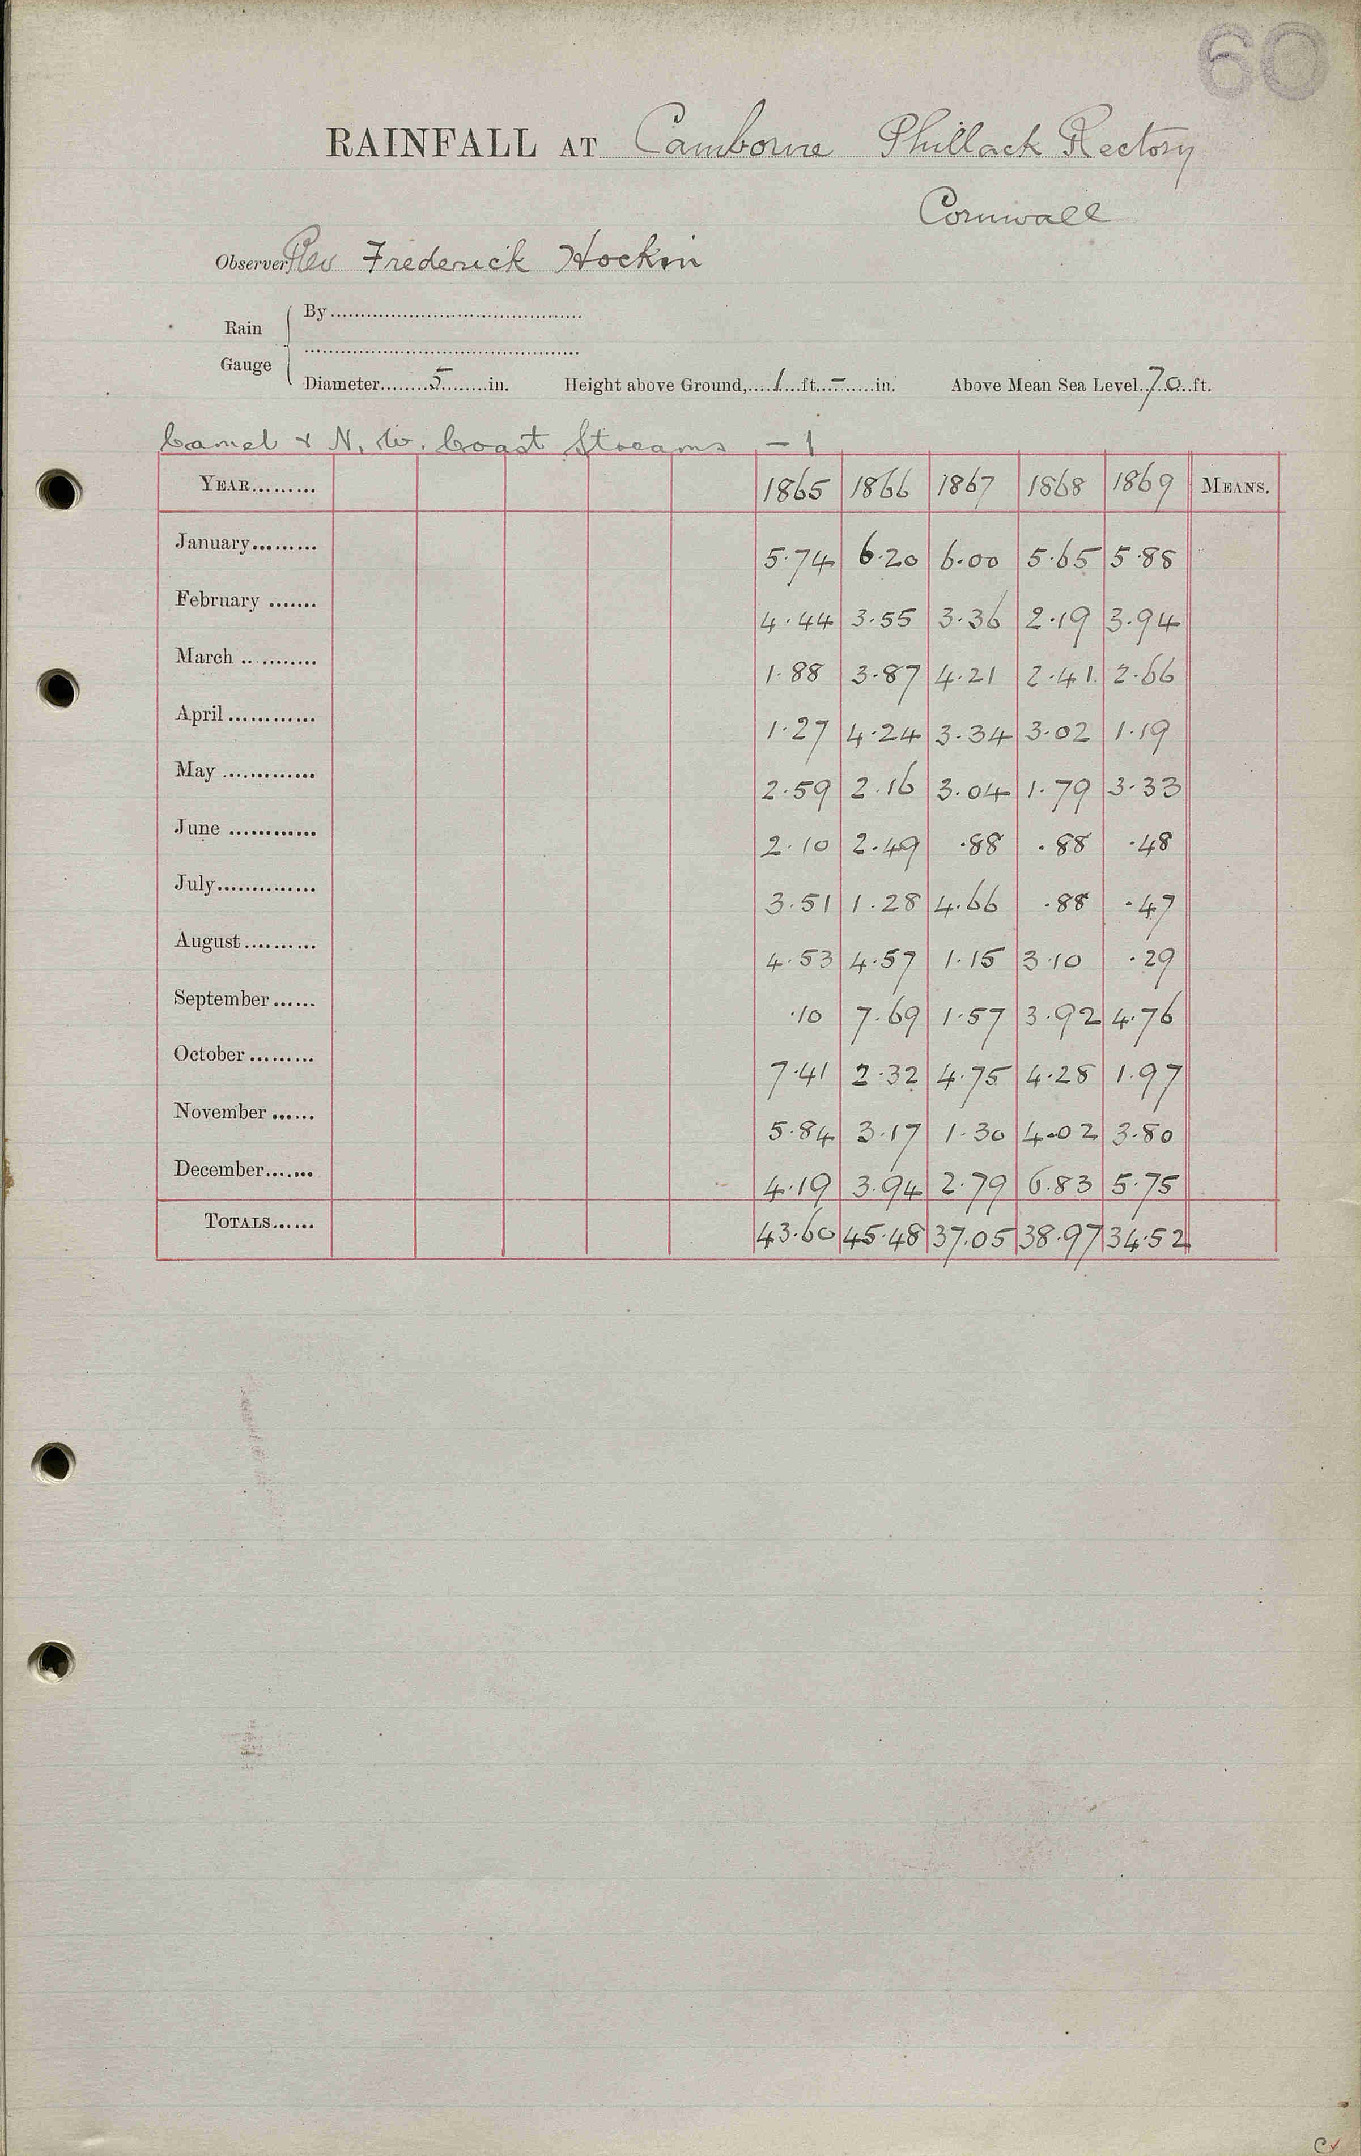 60
RAINFALL AT Camborne Phillack Rectory
Cornwall
Observer Rev Frederick Hockin
Rain Gauge
By
Diameter 5 in. Height above Ground, 1 ft. - in. Above Mean Sea Level 70 ft.
Camel & N. W. Coast Streams - 1
YEAR 1865 1866 1867 1868 1869 MEANS.
January 5.74 6.20 6.00 5.65 5.88
February 4.44 3.55 3.36 2.19 3.94
March 1.88 3.87 4.21 2.41 2.66
April 1.27 4.24 3.34 3.02 1.19
May 2.59 2.16 3.04 1.79 3.33
June 2.10 2.49 .88 .88 .48
July 3.51 1.28 4.66 .88 .47
August 4.53 4.57 1.15 3.10 .29
September .10 7.69 1.57 3.92 4.76
October 7.41 2.32 4.75 4.28 1.97
November 5.84 3.17 1.30 4.02 3.80
December 4.19 3.94 2.79 6.83 5.75
TOTALS 43.60 45.48 37.05 38.97 34.52